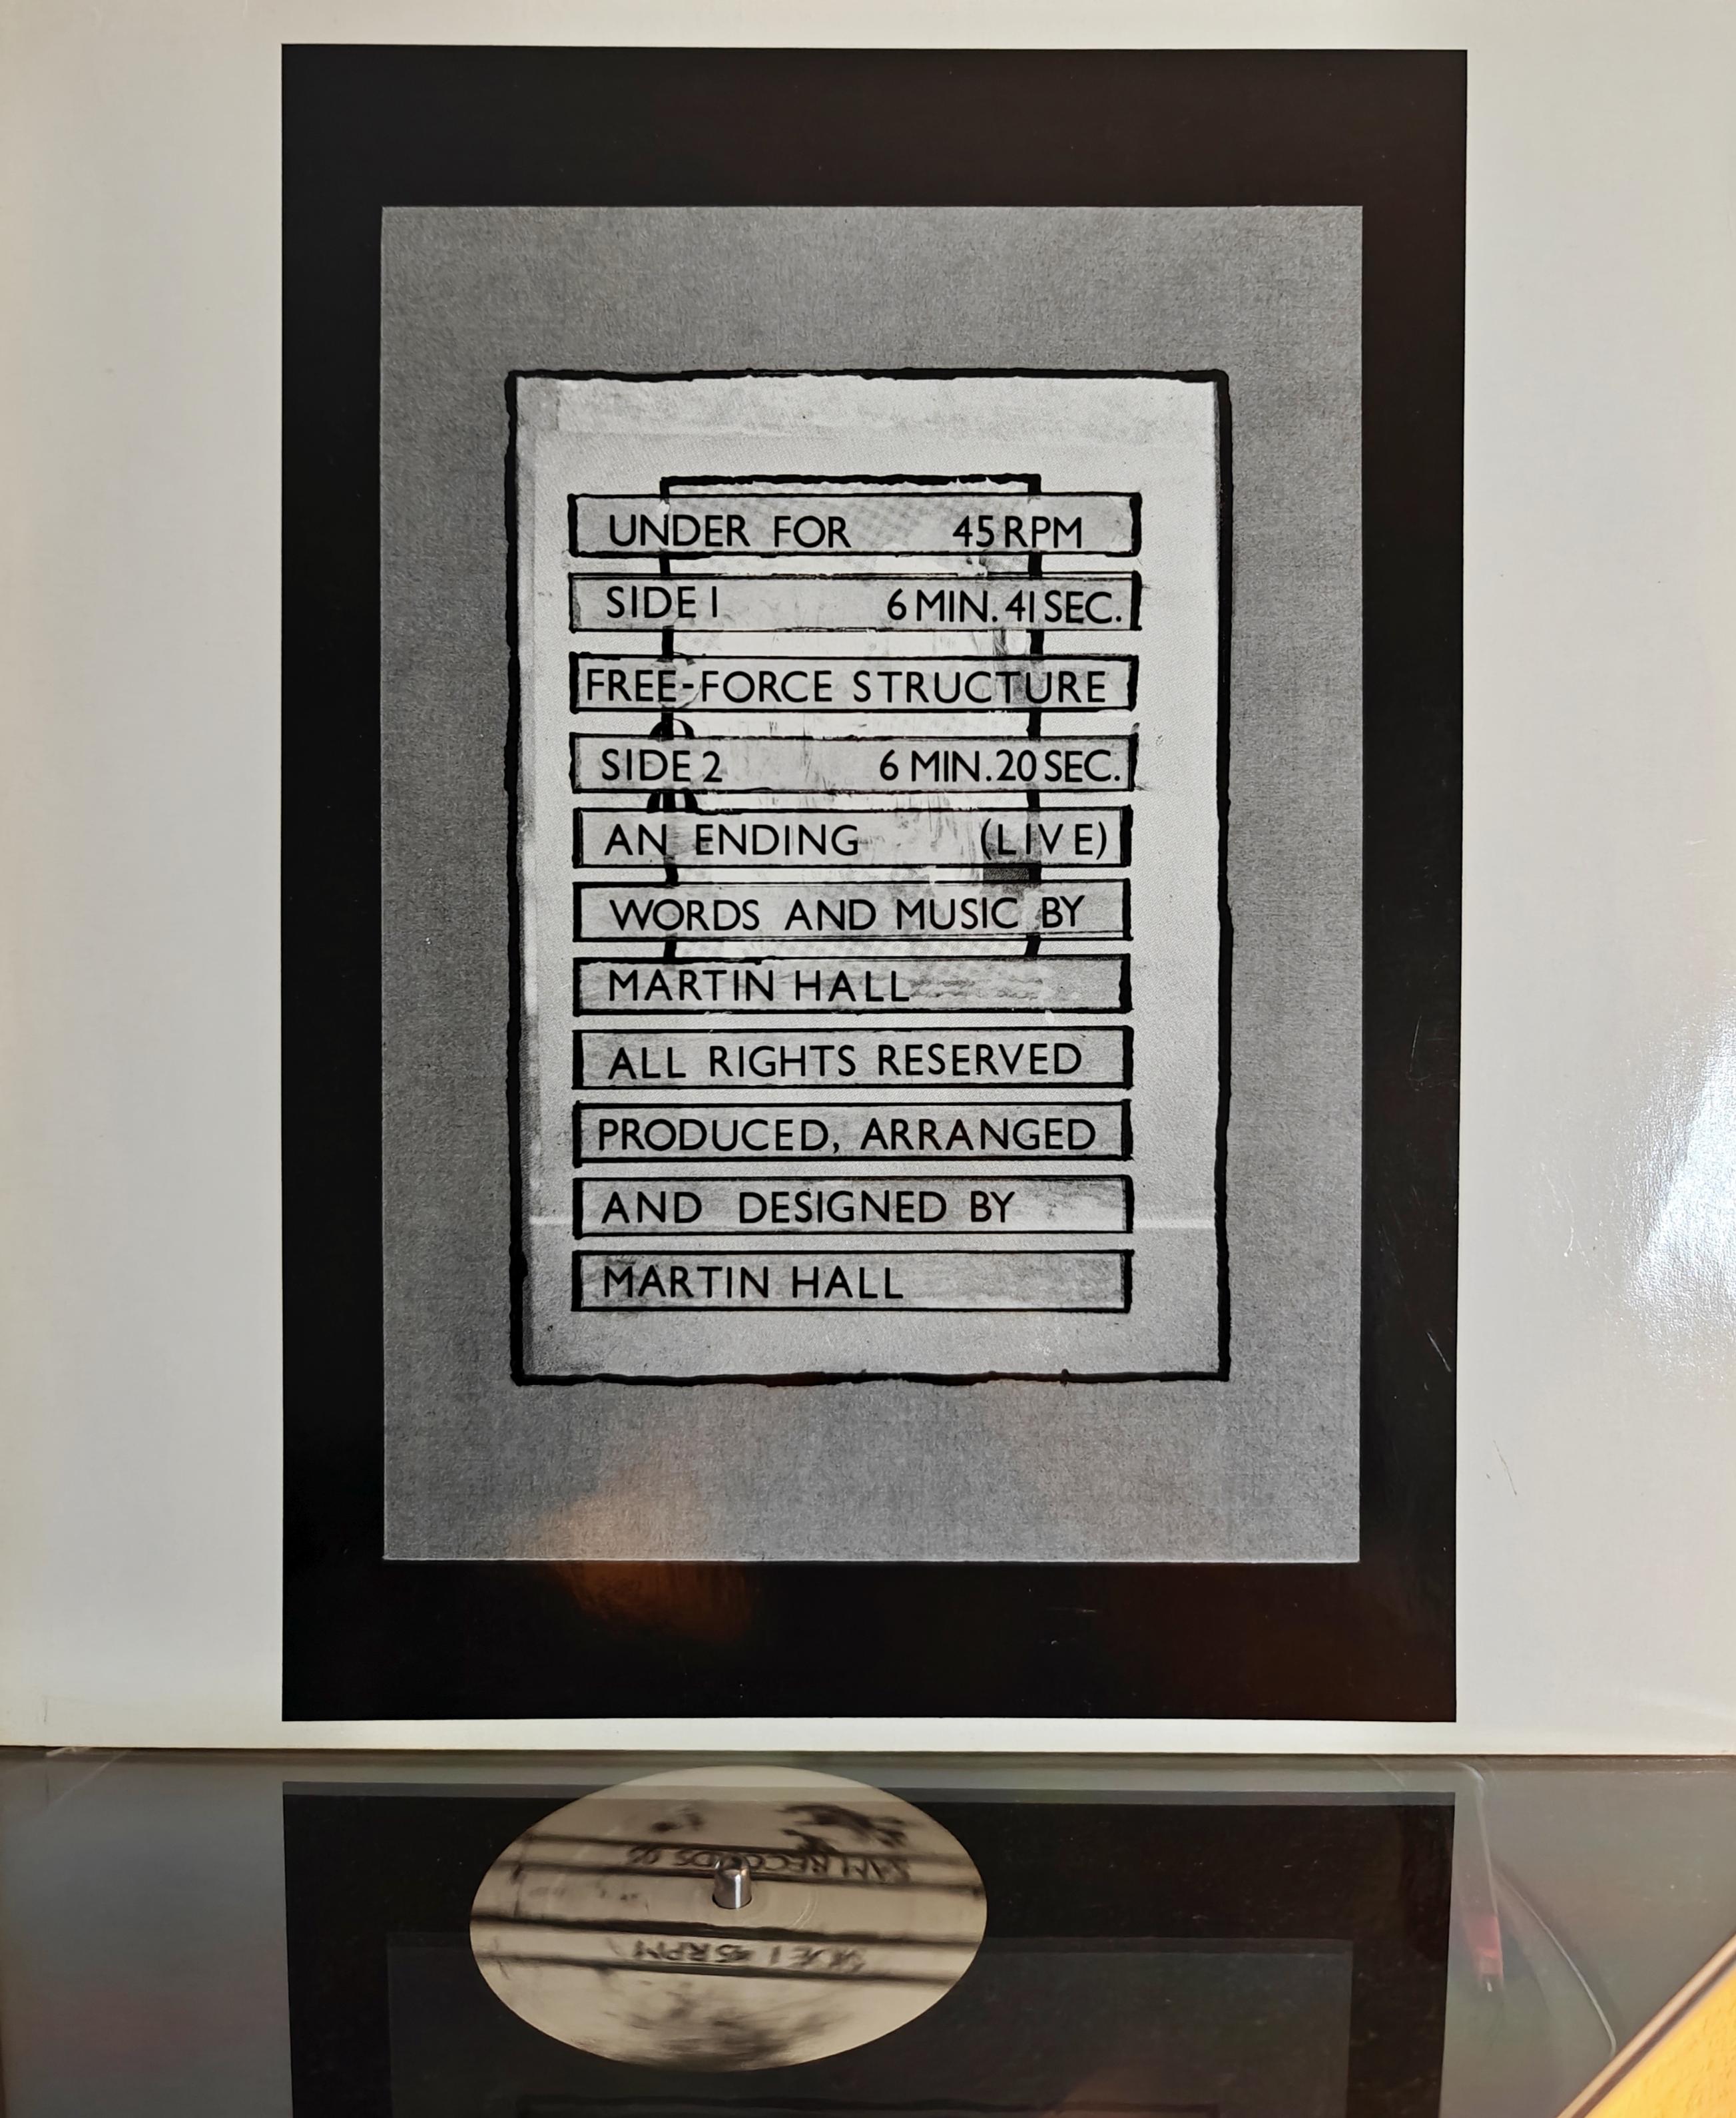 UNDER FOR 45 RPM
SIDE 1 6 MIN. 41 SEC.
FREE-FORCE STRUCTURE
SIDE 2 6 MIN. 20 SEC.
AN ENDING (LIVE)
WORDS AND MUSIC BY
MARTIN HALL
ALL RIGHTS RESERVED
PRODUCED, ARRANGED
AND DESIGNED BY
MARTIN HALL
SIDE 1 45 RPM
RECORDS